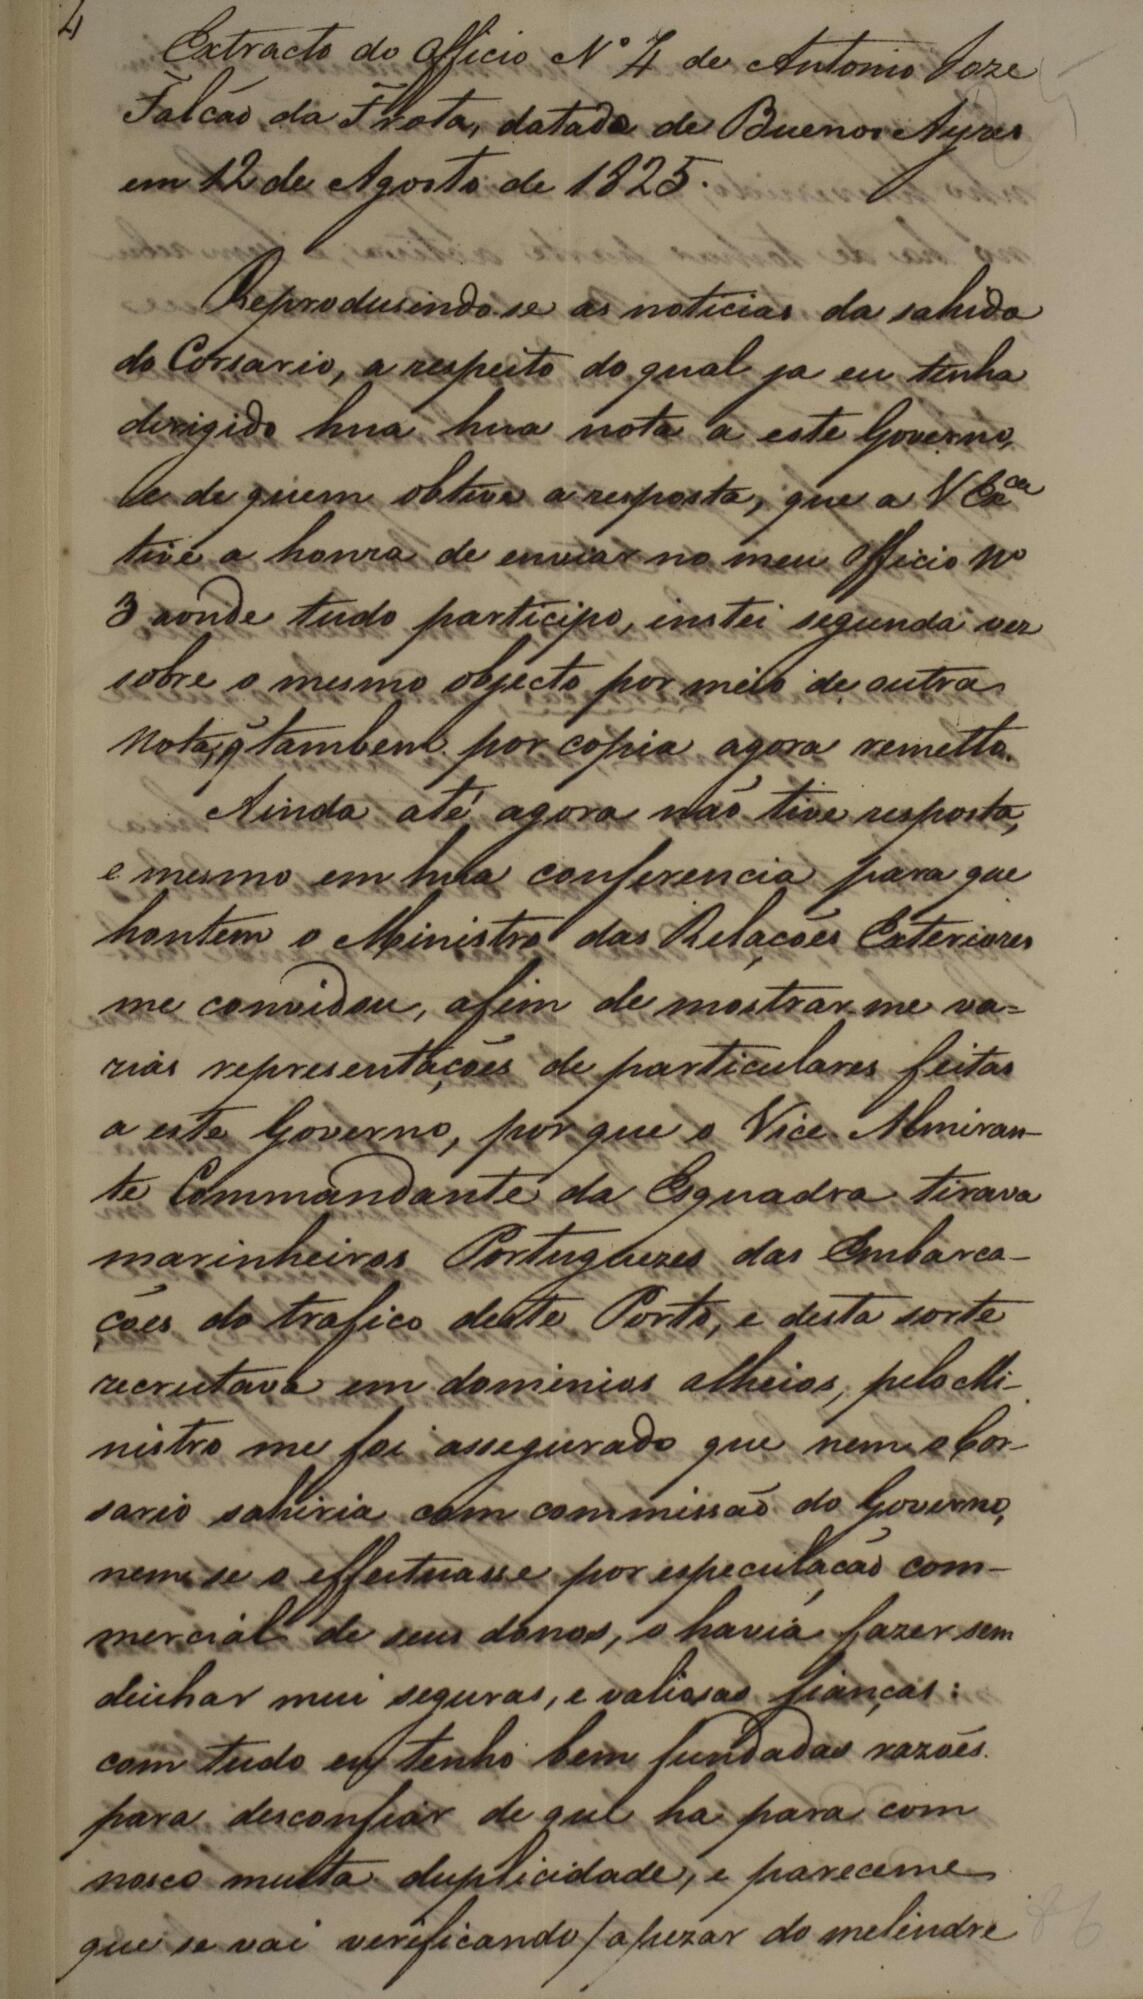 4
Extracto do Officio Nº 4 de Antonio Joze
Falcáo da Frota, datado de Buenos Ayres
em 12 de Agosto de 1825.
Reprodusindo-se as noticias da sahida
do Corsario, a respeito do qual ja eu tinha
dirigido hua hua nota a este Governo,
e de quem obtive a resposta, que a V Exca
tive a honra de enviar no meu Officio Nº
3 aonde tudo participo, instei segunda vez
sobre o mesmo objecto por meio de outra
Nota, q̃ tambem por copia agora remetto.
Ainda até agora náo tive resposta,
e mesmo em hua conferencia para que
hontem o Ministro das Relações Exteriores
me convidou, afim de mostrar-me va=
rias representações de particulares feitas
a este Governo, por que o Vice-Almiran-
te Commandante da Esquadra tirava
marinheiros Portuguezes das Embarca-
ções do trafico deste Porto, e desta sorte
recrutava em dominios alheios, pelo Mi-
nistro me foi assegurado que nem o Cor-
sario sahiria com commissáo do Governo,
nem se o effeituasse por especulaçáo com-
mercial de seus donos, o havia fazer sem
deichar mui seguras, e valiosas fianças:
com tudo eu tenho bem fundadas razões
para desconfiar de que ha para com
nosco muita duplicidade, e pareceme
que se vai verificando /apezar do melindre
86